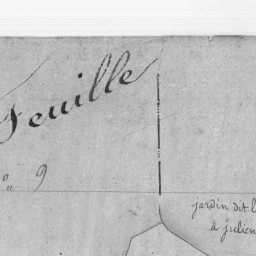 Feuille
n° 9
jardin dit l
à julien